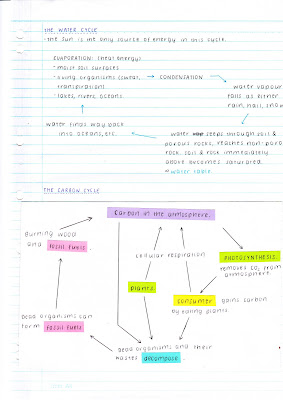 THE WATER CYCLE
- the sun is the only source of energy in this cycle.
EVAPORATION: (heat energy)
* moist soil surfaces
* living organisms (sweat,
transpiration)
* lakes, rivers, oceans.
CONDENSATION
water vapour
falls as either
rain, hail, snow
water finds way back
into oceans, etc.
water seeps through soil &
porous rocks, reaches non-poro
rock. soil & rock immediately
above becomes saturated.
= water table
THE CARBON CYCLE
Carbon in the atmosphere.
Burning wood
and fossil fuels.
cellular respiration
PHOTOSYNTHESIS.
removes CO2 from
atmosphere.
plants
consumer gains carbon
by eating plants
Dead organisms can
form fossil fuels
Dead organisms and their
wastes decompose.